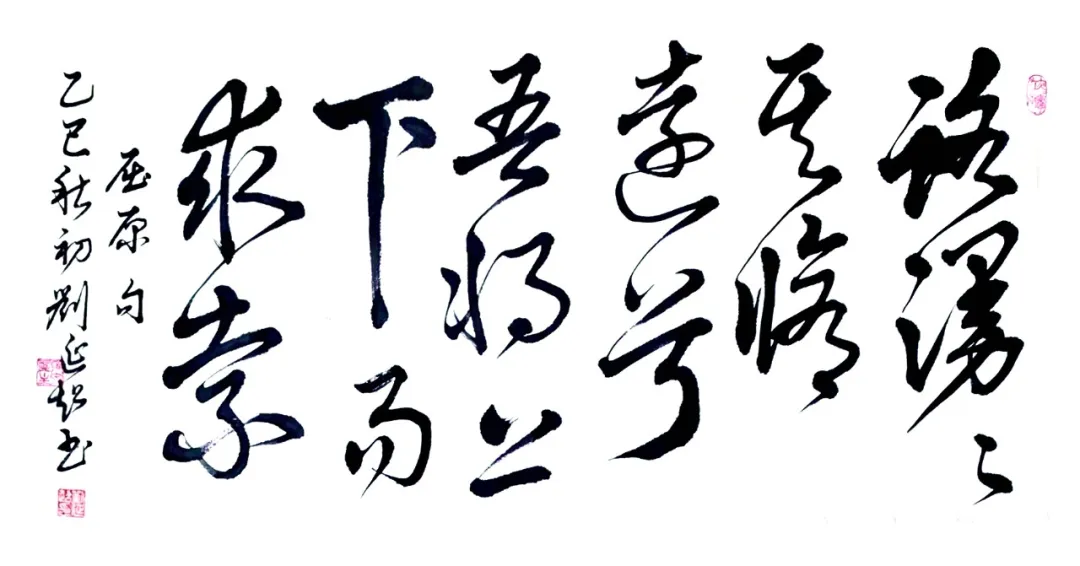 路漫々
其修
远兮
吾将上
下而
求索
屈原句
乙巳秋初刘延超书